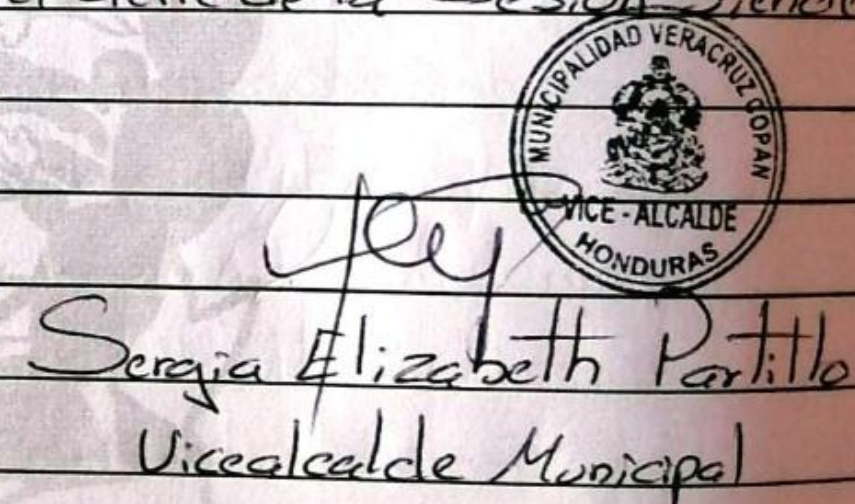 de la Sesión
MUNICIPALIDAD VERACRUZ COPÁN
VICE - ALCALDE
HONDURAS
Sergia Elizabeth Partillo
Vicealcalde Municipal